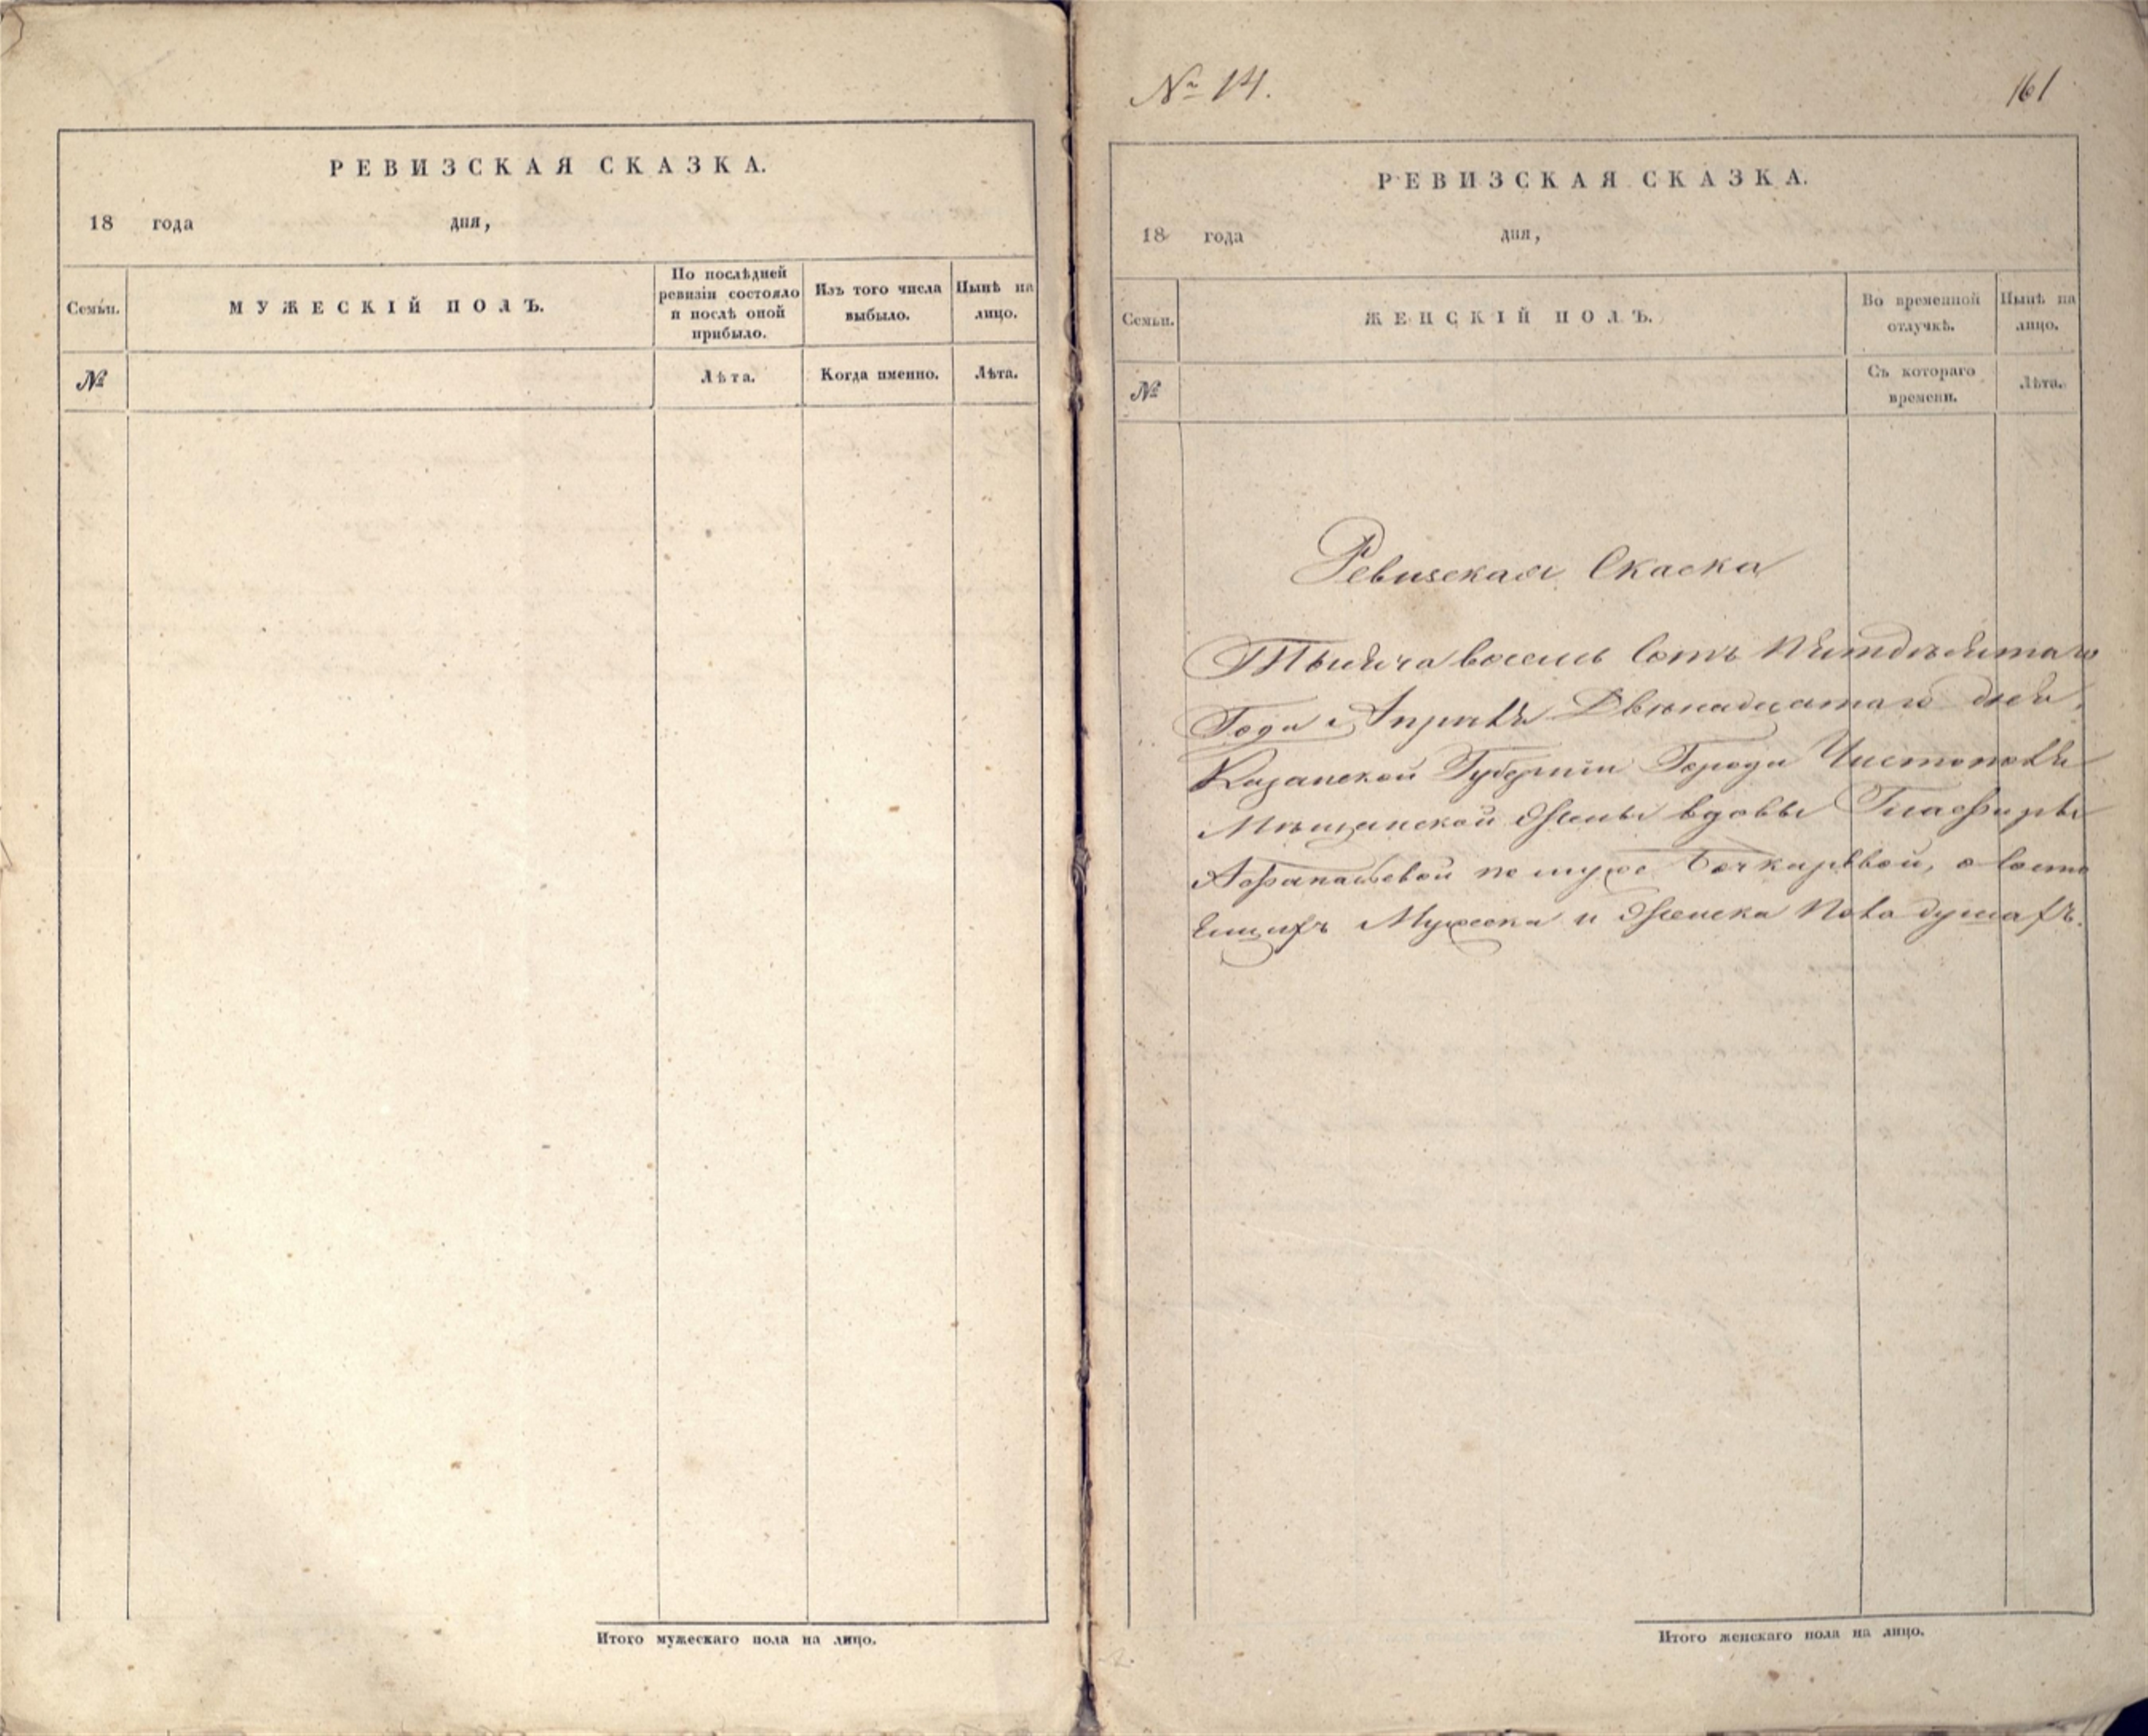 РЕВИЗСКАЯ СКАЗКА.
18 года дня,
Семьи.
МУЖЕСКІЙ ПОЛЪ.
По послѣдней
ревизіи состояло
и послѣ оной
прибыло.
Изъ того числа
выбыло.
Нынѣ на
лицо.
№
Лѣта.
Когда именно.
Лѣта.
Итого мужескаго пола на лицо.
№ 14.
161
РЕВИЗСКАЯ СКАЗКА.
18 года дня,
Семьи.
ЖЕНСКІЙ ПОЛЪ.
Во временной
отлучкѣ.
Нынѣ на
лицо.
№
Съ котораго
времени.
Лѣта.
Ревизская Скаска
Тысяча восемь Сотъ Пятдѣсятаго
Года Апрѣля Двѣнадцатаго дня,
Казанской Губерніи Города Чистополя
Мѣщанской Жены вдовы Глафиры
Афанасьевой по мужѣ Бочкарѣвой, о состо
ящихъ Мужеска и Женска пола душахъ.
Итого женскаго пола на лицо.